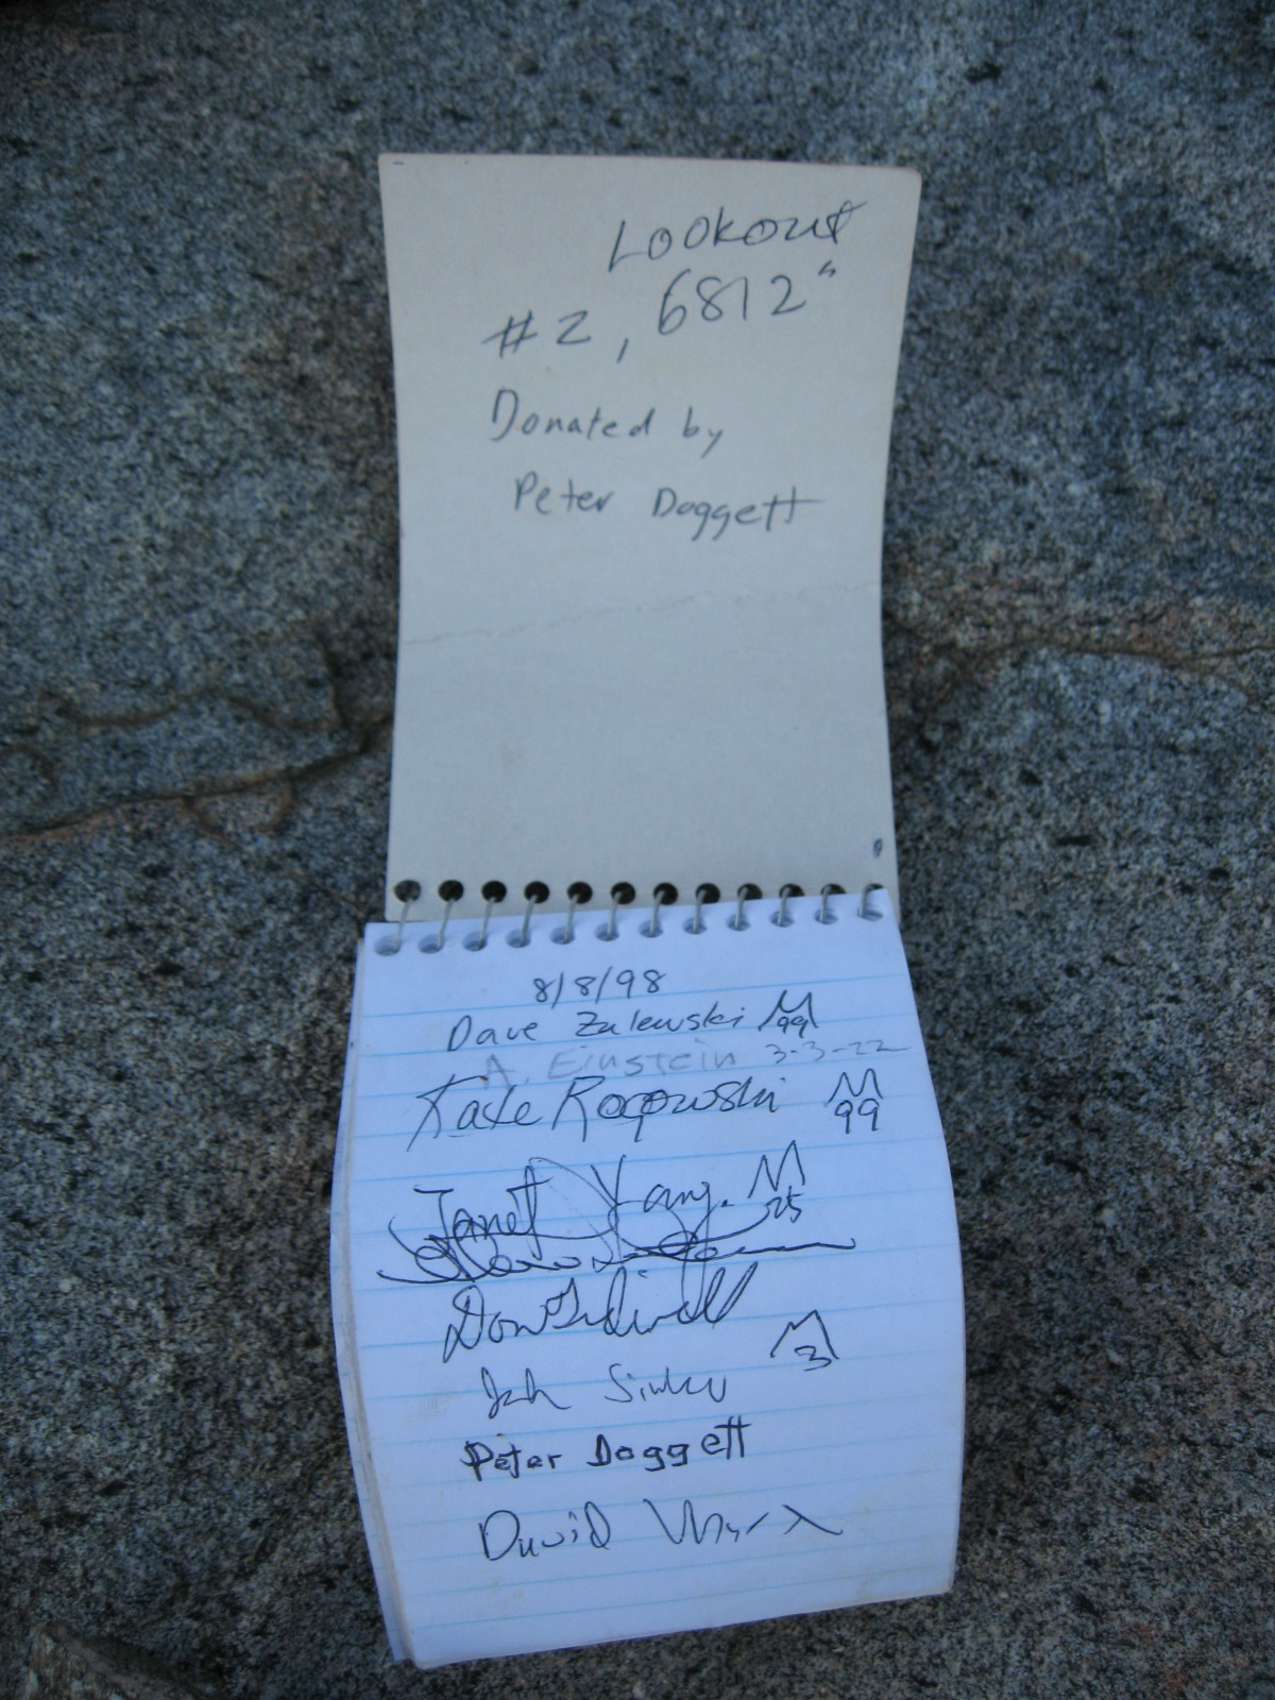 Lookout
#2, 6812"
Donated by
Peter Doggett
8/8/98
Dave Zalewski M 99
A. Einstein 3-3-22
Kate Rogowski M 99
Janet Yang. M 25
Don Tidwell
M 3
Peter Doggett
David